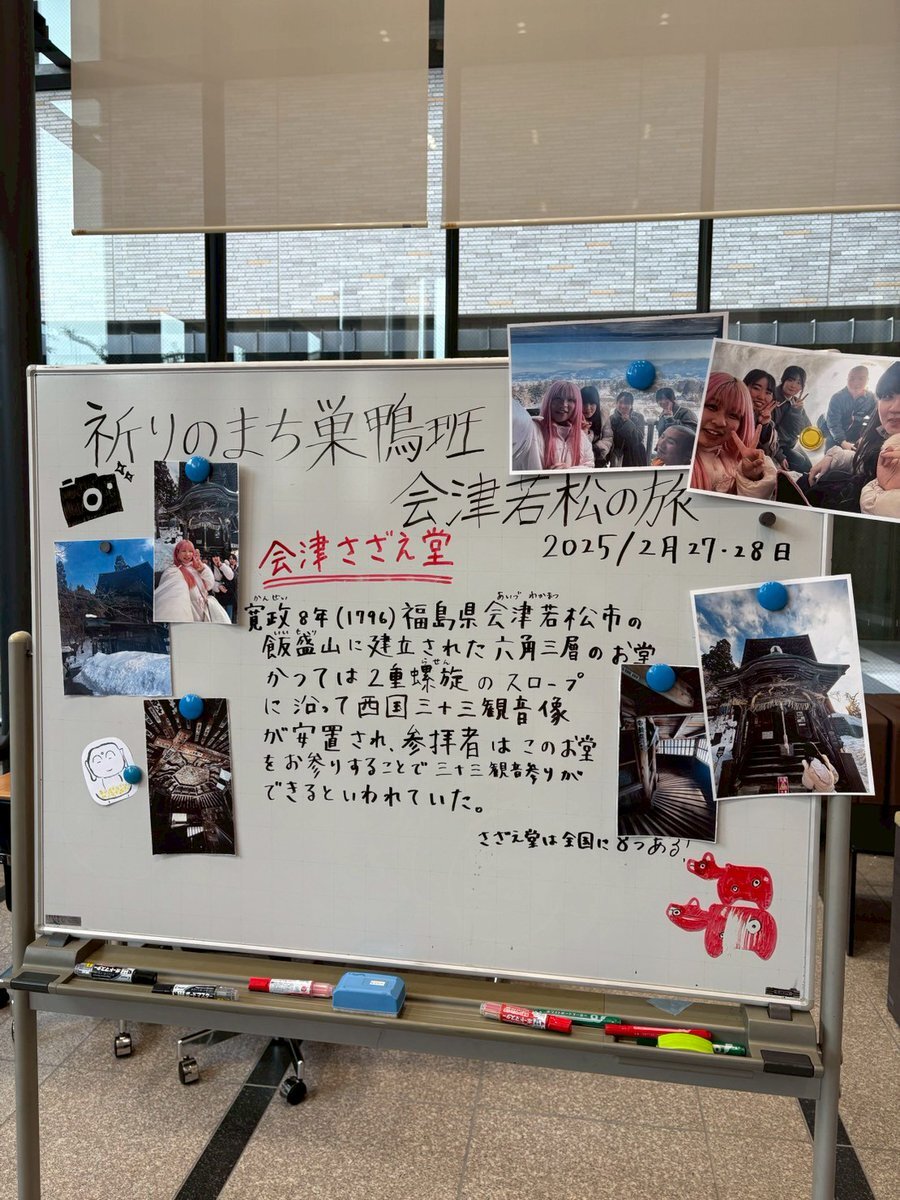 祈りのまち巣鴨班
会津若松の旅
2025/2月27・28日
会津さざえ堂
かんせい
あいづ わかまつ
寛政8年(1796)福島県会津若松市の
いいもり
飯盛山に建立された六角三層のお堂
らせん
かつては2重螺旋のスロープ
に沿って西国三十三観音像
が安置され、参拝者はこのお堂
をお参りすることで三十三観音参りが
できるといわれていた。
さざえ堂は全国に8つある!